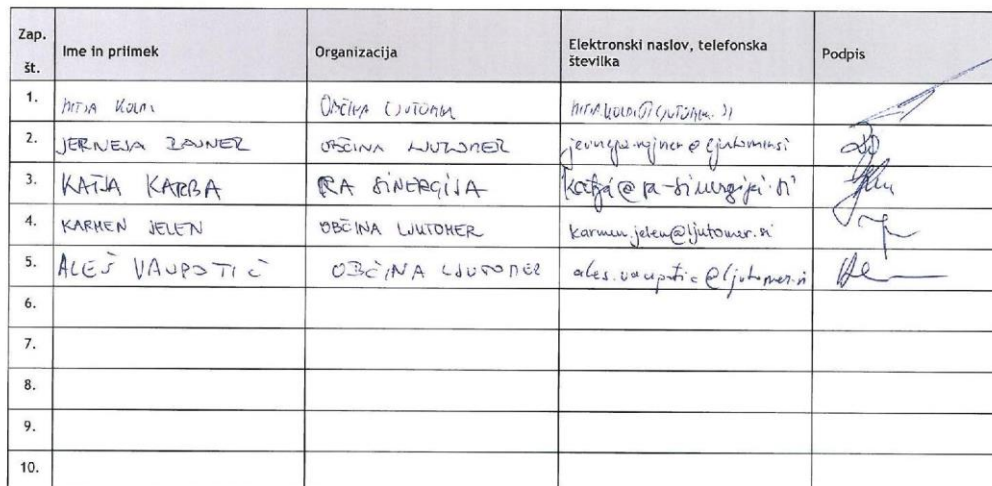 Zap. št. Ime in priimek Organizacija Elektronski naslov, telefonska številka Podpis
1. MITJA KOLBL OBČINA LJUTOMER
2. JERNEJA OBČINA LJUTOMER
3. KATJA KARBA RA SINERGIJA katja@ra-sinergija.si
4. KARMEN JELEN OBČINA LJUTOMER karmen.jelen@ljutomer.si
5. ALEŠ VAUPOTIČ OBČINA LJUTOMER ales.vaupotic@ljutomer.si
6.
7.
8.
9.
10.